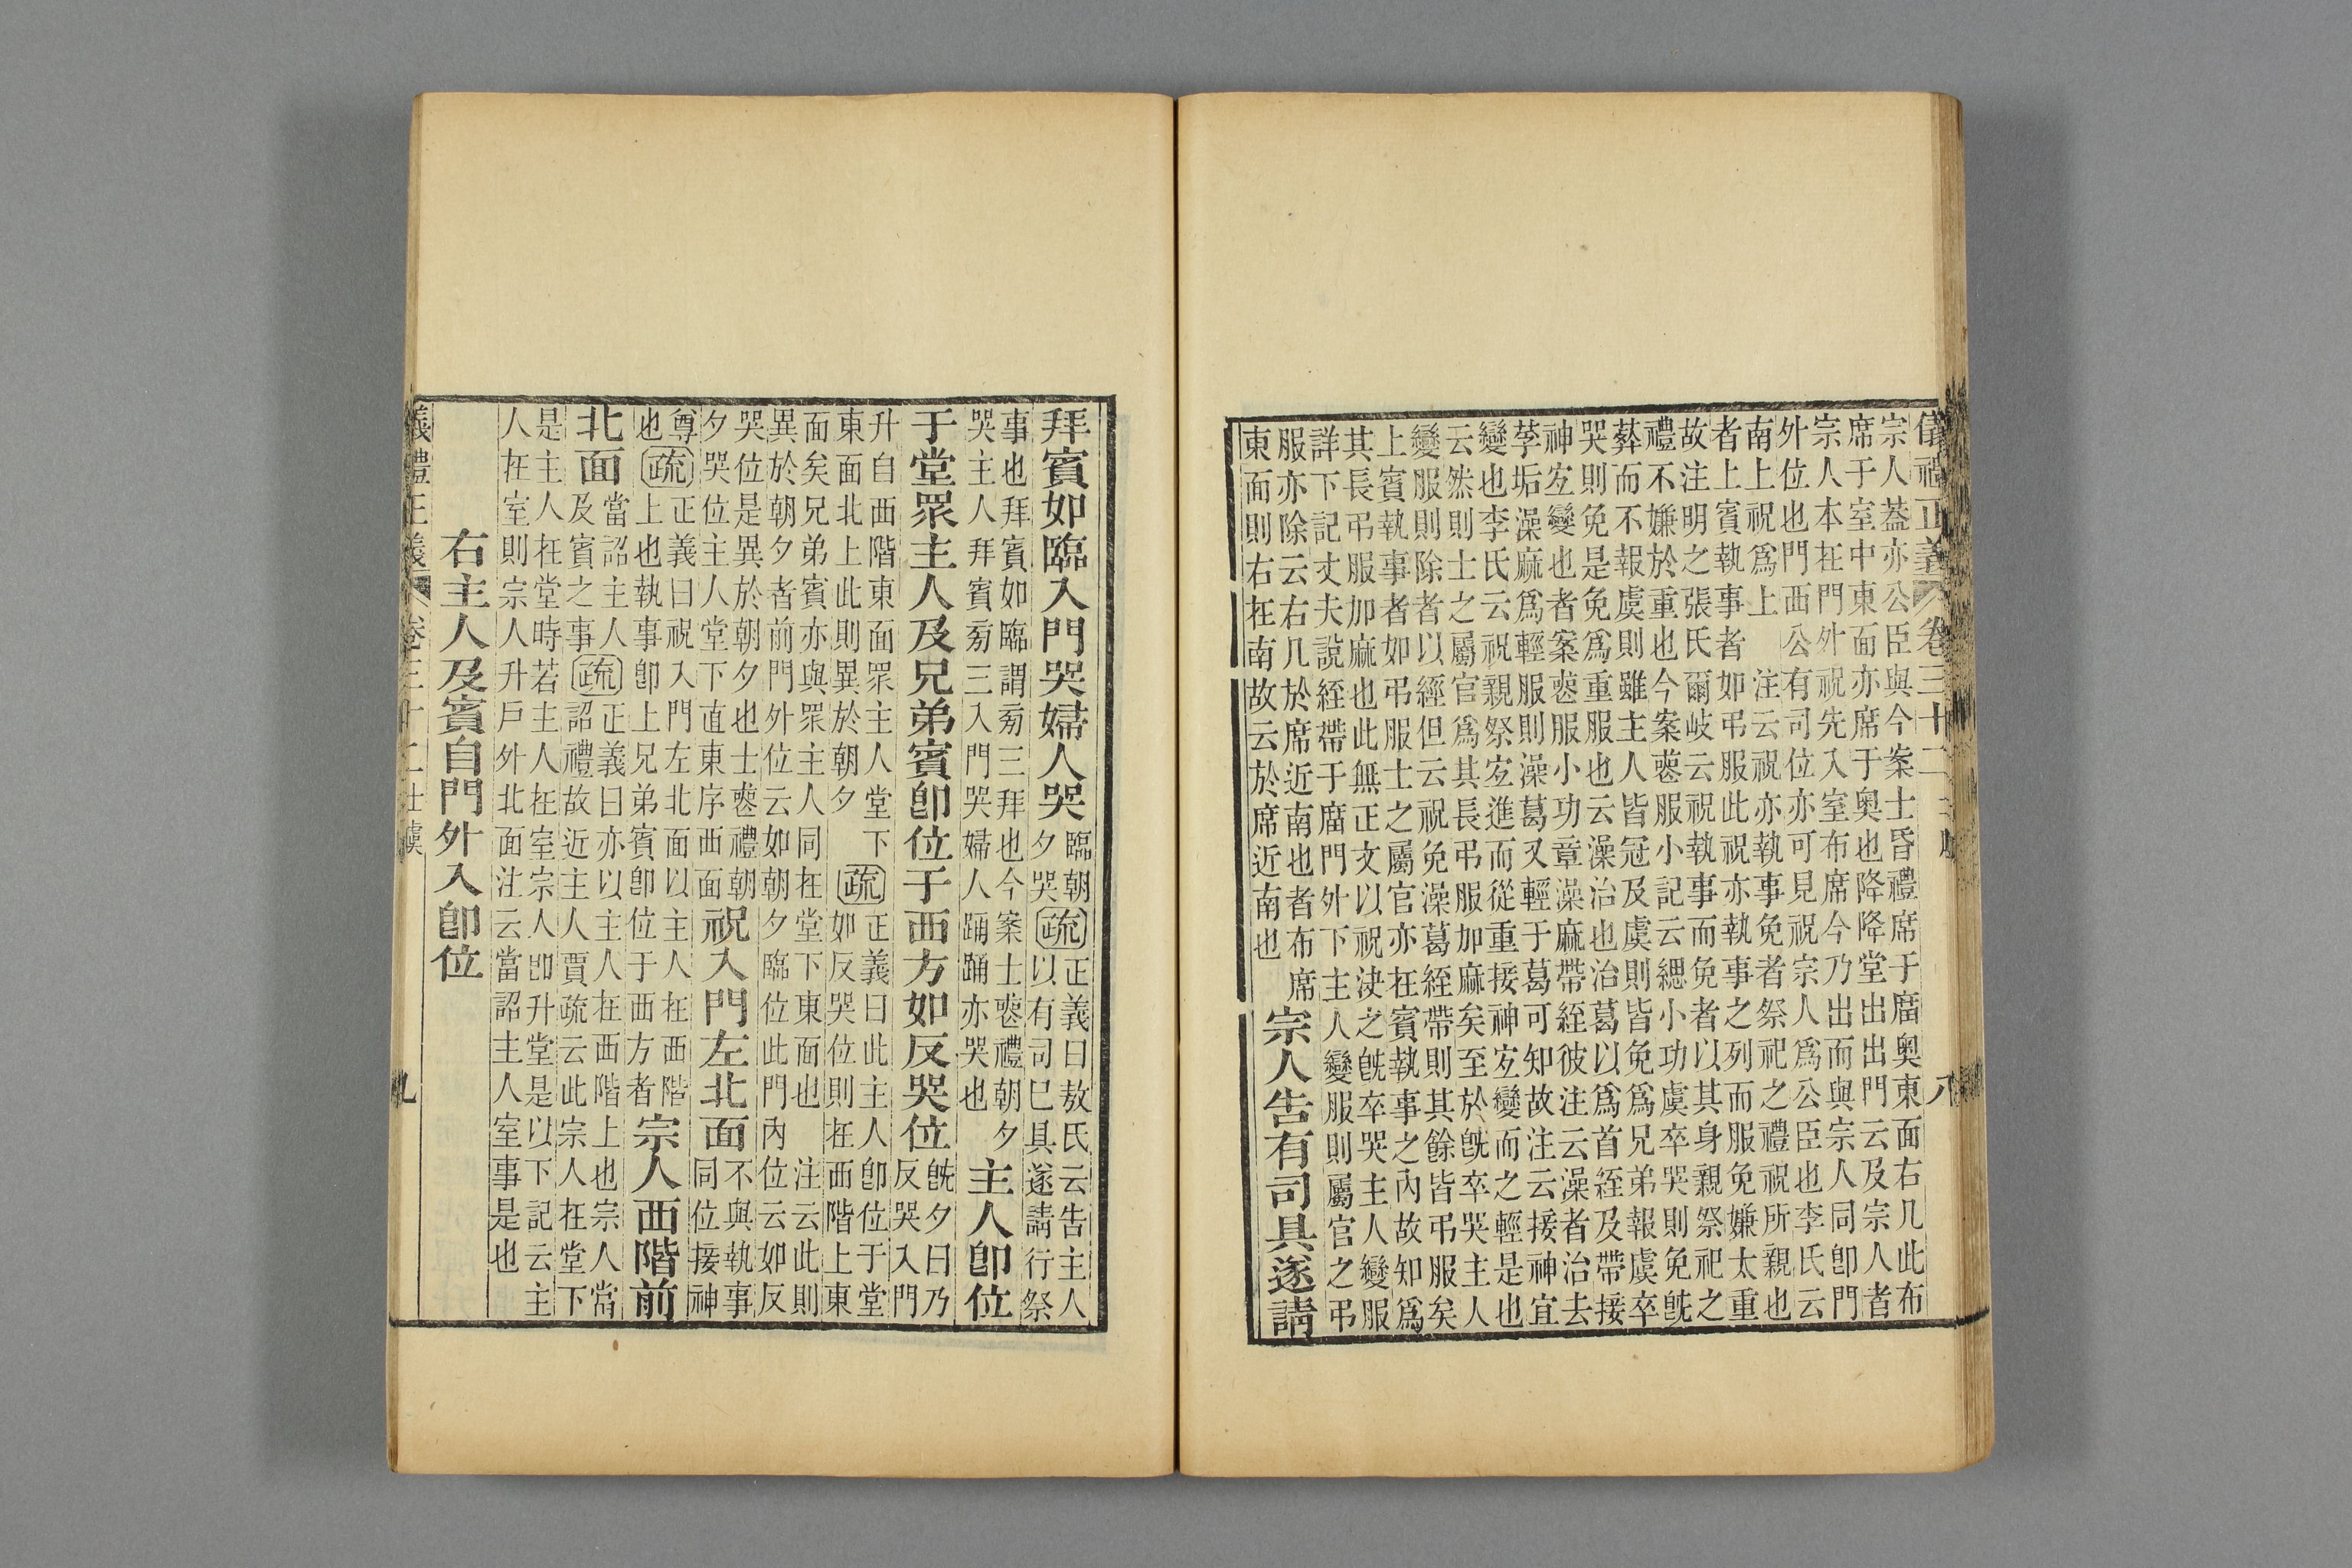 儀禮正義 卷三十二 八
宗人葢亦公臣與今案士昏禮席于廟奥東面右几此布
席于室中東面亦席于奥也降降堂出出門云及宗人者
宗人本在門外祝先入室布席今乃出而與宗人同卽門
外位也門西公有司位亦可見祝宗人爲公臣也李氏云
南上祝爲上 注云祝亦執事免者祭祀之禮祝所親也
者上賓執事者如弔服此祝亦執事之列而服免嫌太重
故注明之張氏爾岐云祝執事而免者以其身親祭祀之
禮不嫌於重也今案䘮服小記云緦小功虞卒哭則免旣
葬而不報虞則雖主人皆冠及虞則皆免爲兄弟報虞卒
哭則免是免爲重服也云澡治也治葛以爲首絰及帶接
神宜變也者案䘮服小功章澡麻帶絰彼注云澡者治去
莩垢澡麻爲輕服則澡葛又輕于葛可知故注云接神宜
變也李氏云祝親祭宜進而從重接神宜變而之輕是也
云然則士之屬官爲其長弔服加麻矣至於旣卒哭主人
變服則除者以經但云祝免澡葛絰帶則其餘皆弔服矣
上賓執事者如弔服士之屬官亦在賓執事之內故知爲
其長弔服加麻也此無正文以祝決之旣卒哭主人變服
詳下記丈夫說絰帶于廟門外下主人變服則屬官之弔
服亦除云右几於席近南也者布席
東面則右在南故云於席近南也
宗人告有司具遂請
拜賓如臨入門哭婦人哭
臨朝
夕哭
疏
正義曰敖氏云告主人
以有司已具遂請行祭
事也拜賓如臨謂㫄三拜也今案士䘮禮朝夕
哭主人拜賓㫄三入門哭婦人踊踊亦哭也
主人卽位
于堂眾主人及兄弟賓卽位于西方如反哭位
旣夕曰乃
反哭入門
升自西階東面眾主人堂下
東面北上此則異於朝夕
疏
正義曰此主人卽位于堂
如反哭位則在西階上東
面矣兄弟賓亦與眾主人同在堂下東面也 注云此則
異於朝夕者前門外位云如朝夕臨位此門內位云如反
哭位是異於朝夕也士䘮禮朝
夕哭位主人堂下直東序西面
祝入門左北面
不與執事
同位接神
尊
也
疏
正義曰祝入門左北面以主人在西階
上也執事卽上兄弟賓卽位于西方者
宗人西階前
北面
當詔主人
及賓之事
疏
正義曰亦以主人在西階上也宗人當
詔禮故近主人賈疏云此宗人在堂下
是主人在堂時若主人在室宗人卽升堂是以下記云主
人在室則宗人升戶外北面注云當詔主人室事是也
右主人及賓自門外入卽位
儀禮正義 卷三十二 士虞 九